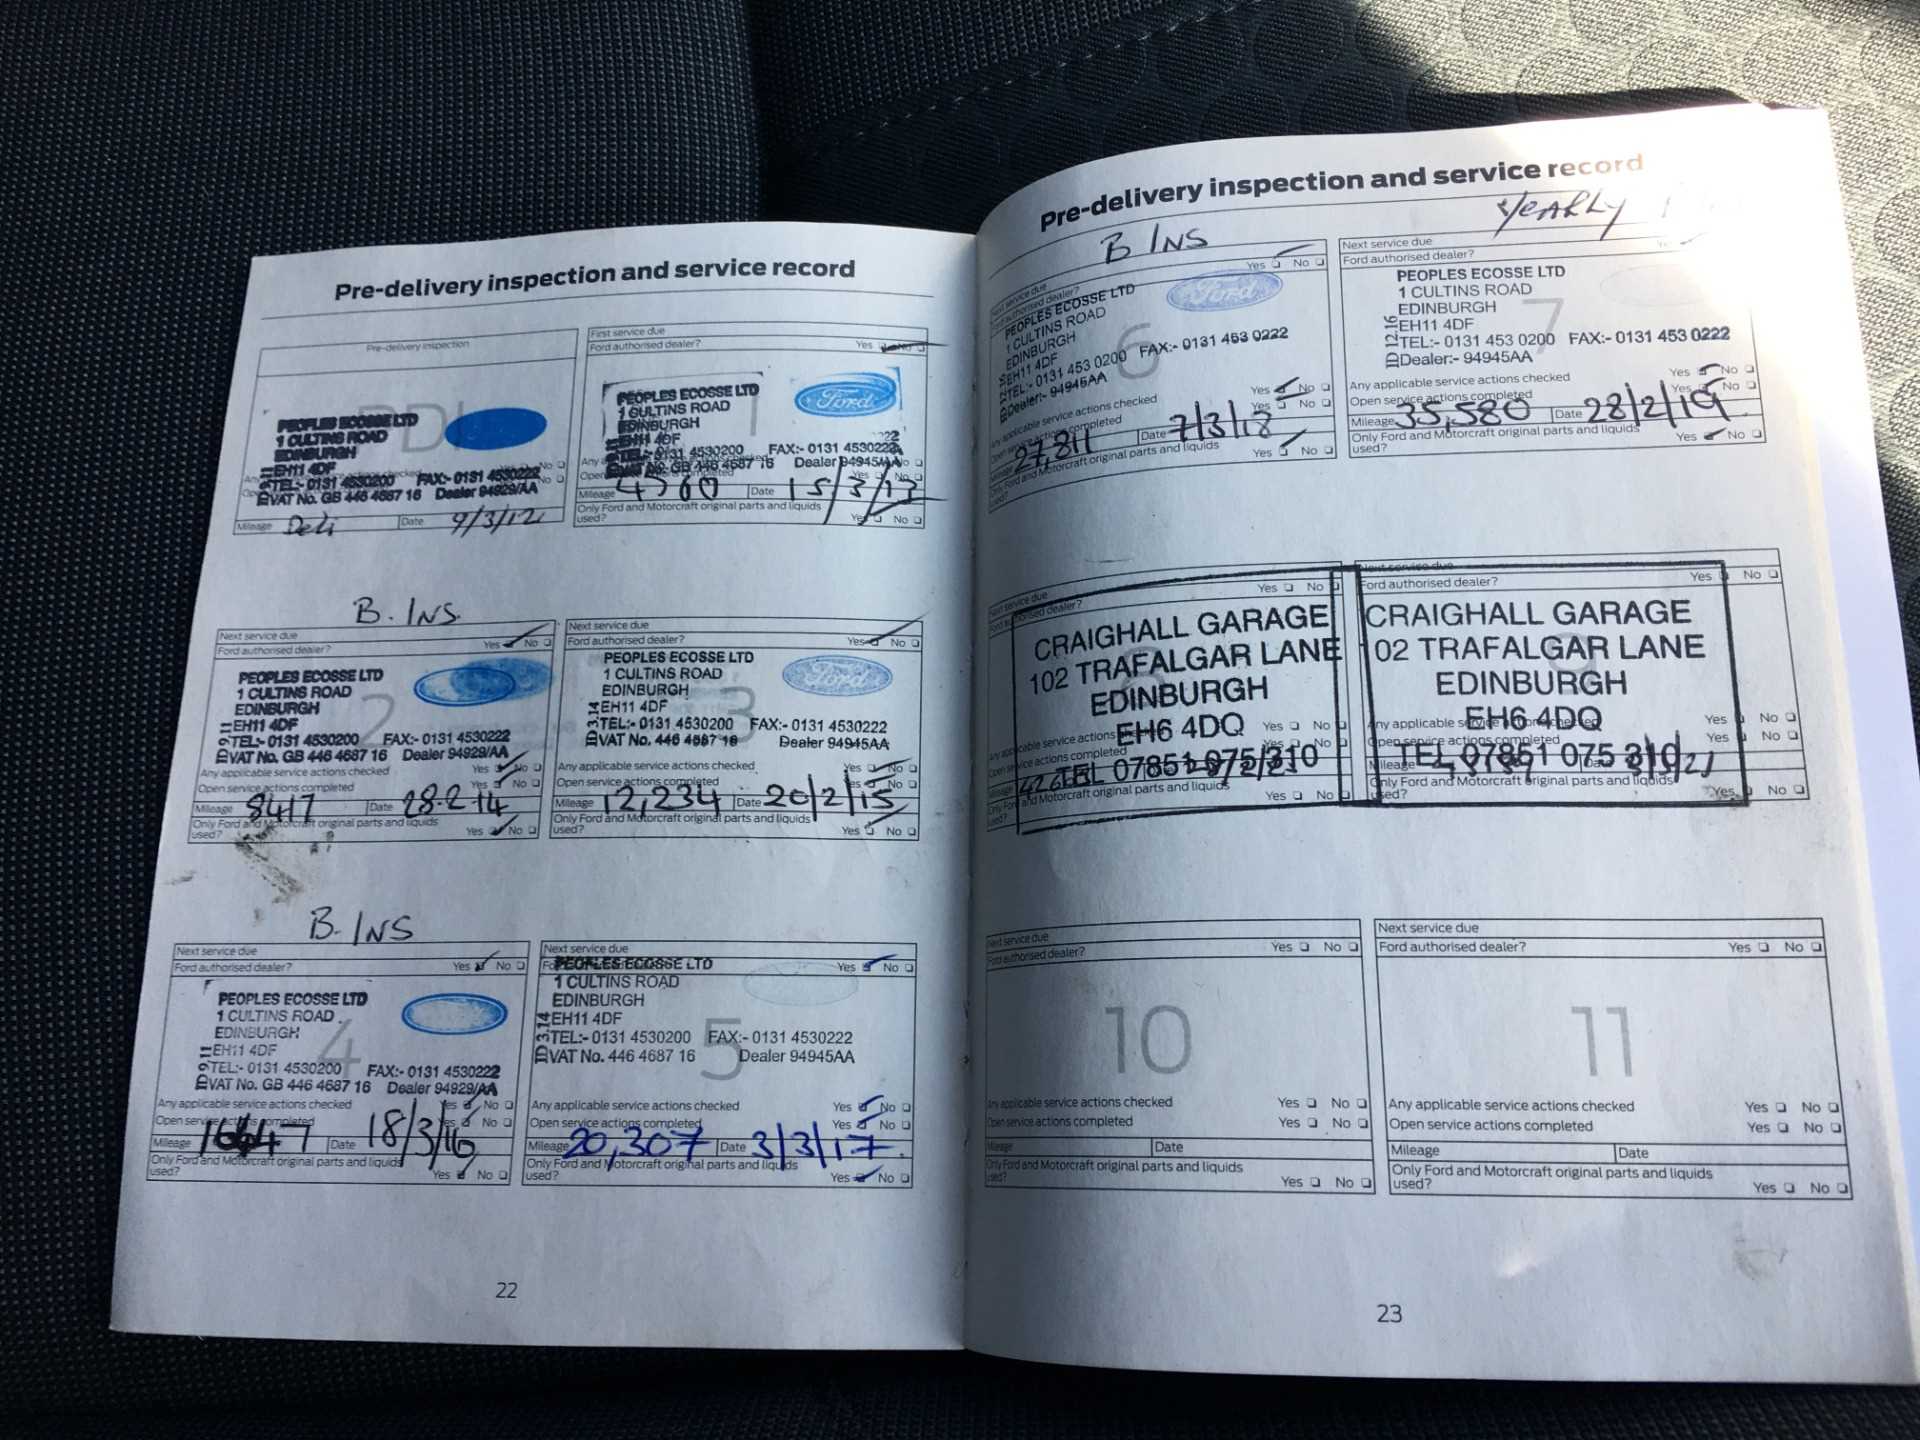 Pre-delivery inspection and service record
Pre-delivery inspection
PEOPLES ECOSSE LTD
1 CULTINS ROAD
EDINBURGH
EH11 4DF
TEL:- 0131 4530200 FAX:- 0131 4530222
VAT No. GB 446 4687 16 Dealer 94929/AA
No
No
Mileage Deli Date 9/3/12
First service due
Ford authorised dealer? Yes No
PEOPLES ECOSSE LTD
1 CULTINS ROAD
EDINBURGH
EH11 4DF
TEL:- 0131 4530200 FAX:- 0131 4530222
VAT No. GB 446 4687 16 Dealer 94945/AA
Ford
Mileage Date 15/3/13
Only Ford and Motorcraft original parts and liquids
used? Yes No
B. INS
Next service due
Ford authorised dealer? Yes No
PEOPLES ECOSSE LTD
1 CULTINS ROAD
EDINBURGH
2
EH11 4DF
TEL:- 0131 4530200 FAX:- 0131 4530222
VAT No. GB 446 4687 16 Dealer 94929/AA
Any applicable service actions checked Yes No
Open service actions completed Yes No
Mileage 8417 Date 28.2.14
Only Ford and Motorcraft original parts and liquids
used? Yes No
Next service due
Ford authorised dealer? Yes No
PEOPLES ECOSSE LTD
1 CULTINS ROAD
EDINBURGH
Ford
3
EH11 4DF
TEL:- 0131 4530200 FAX:- 0131 4530222
VAT No. 446 4687 16 Dealer 94945AA
ID 3.14
Any applicable service actions checked Yes No
Open service actions completed Yes No
Mileage 12,234 Date 20/2/15
Only Ford and Motorcraft original parts and liquids
used? Yes No
B. INS
Next service due
Ford authorised dealer? Yes No
PEOPLES ECOSSE LTD
1 CULTINS ROAD
EDINBURGH
4
EH11 4DF
TEL:- 0131 4530200 FAX:- 0131 4530222
VAT No. GB 446 4687 16 Dealer 94929/AA
ID 9.11
Any applicable service actions checked Yes No
Open service actions completed Yes No
Mileage Date 18/3/16
Only Ford and Motorcraft original parts and liquids
used? Yes No
Next service due
Yes No
PEOPLES ECOSSE LTD
1 CULTINS ROAD
EDINBURGH
5
EH11 4DF
TEL:- 0131 4530200 FAX:- 0131 4530222
VAT No. 446 4687 16 Dealer 94945AA
ID 3.14
Any applicable service actions checked Yes No
Open service actions completed Yes No
Mileage 20,307 Date 3/3/17
Only Ford and Motorcraft original parts and liquids
used? Yes No
22
Pre-delivery inspection and service record
B INS
Next service due
Ford authorised dealer? Yes No
PEOPLES ECOSSE LTD
1 CULTINS ROAD
EDINBURGH
Ford
6
EH11 4DF
TEL:- 0131 453 0200 FAX:- 0131 453 0222
Dealer:- 94945AA
Any applicable service actions checked Yes No
Open service actions completed Yes No
Mileage 27,811 Date 7/3/18
Only Ford and Motorcraft original parts and liquids
used? Yes No
YEARLY
Next service due
Ford authorised dealer?
PEOPLES ECOSSE LTD
1 CULTINS ROAD
EDINBURGH
7
EH11 4DF
TEL:- 0131 453 0200 FAX:- 0131 453 0222
Dealer:- 94945AA
ID 12.16
Any applicable service actions checked Yes No
Open service actions completed Yes No
Mileage 35,580 Date 28/2/19
Only Ford and Motorcraft original parts and liquids
used? Yes No
Next service due
Yes No
CRAIGHALL GARAGE
102 TRAFALGAR LANE
EDINBURGH
EH6 4DQ
TEL 07851 075 310
8
Any applicable service actions checked Yes No
Only Ford and Motorcraft original parts and liquids
used? Yes No
Next service due
Ford authorised dealer? Yes No
CRAIGHALL GARAGE
02 TRAFALGAR LANE
EDINBURGH
EH6 4DQ
TEL 07851 075 310
9
Any applicable service actions checked Yes No
Open service actions completed Yes No
Mileage Date
Only Ford and Motorcraft original parts and liquids
used? Yes No
Next service due
Ford authorised dealer? Yes No
10
Any applicable service actions checked Yes No
Open service actions completed Yes No
Mileage Date
Only Ford and Motorcraft original parts and liquids
used? Yes No
Next service due
Ford authorised dealer? Yes No
11
Any applicable service actions checked Yes No
Open service actions completed Yes No
Mileage Date
Only Ford and Motorcraft original parts and liquids
used? Yes No
23